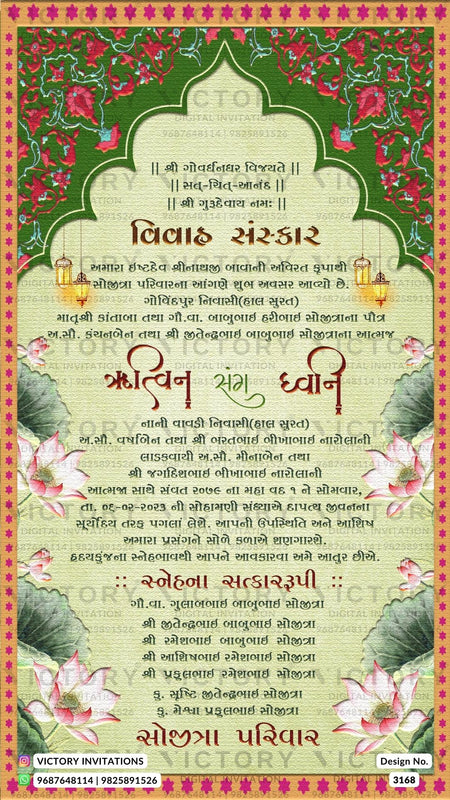 || શ્રી ગોવર્ધનધર વિજયતે ||
|| સત્-ચિત્-આનંદ ||
|| શ્રી ગુરૂદેવાય નમઃ ||
વિવાહ સંસ્કાર
અમારા ઇષ્ટદેવ શ્રીનાથજી બાવાની અવિરત કૃપાથી
સોજીત્રા પરિવારના આંગણે શુભ અવસર આવ્યો છે.
ગોવિંદપુર નિવાસી(હાલ સુરત)
માતૃશ્રી કાંતાબા તથા ગૌ.વા. બાબુભાઇ હરીભાઇ સોજીત્રાના પૌત્ર
અ.સૌ. કંચનબેન તથા શ્રી જીતેન્દ્રભાઇ બાબુભાઇ સોજીત્રાના આત્મજ
ઋત્વિન સંગ ધ્વનિ
નાની વાવડી નિવાસી(હાલ સુરત)
અ.સૌ. વર્ષાબેન તથા શ્રી ભરતભાઇ ભીખાભાઇ નારોલાની
લાડકવાયી અ.સૌ. મીનાબેન તથા
શ્રી જગદિશભાઇ ભીખાભાઇ નારોલાની
આત્મજા સાથે સંવત ૨૦૭૯ ના મહા વદ ૧ ને સોમવાર,
તા. ૦૬-૦૨-૨૦૨૩ ની સોહામણી સંધ્યાએ દાંપત્ય જીવનના
સૂર્યોદય તરફ પગલાં લેશે. આપની ઉપસ્થિતિ અને આશિષ
અમારા પ્રસંગને સોળે કળાએ શણગારશે.
હૃદયકુંજના સ્નેહભાવથી આપને આવકારવા અમે આતુર છીએ.
:: સ્નેહના સત્કારરૂપી ::
ગૌ.વા. ગુલાબભાઇ બાબુભાઇ સોજીત્રા
શ્રી જીતેન્દ્રભાઇ બાબુભાઇ સોજીત્રા
શ્રી રમેશભાઇ બાબુભાઇ સોજીત્રા
શ્રી આશિષભાઇ રમેશભાઇ સોજીત્રા
શ્રી પ્રફૂલભાઇ રમેશભાઇ સોજીત્રા
કુ. સૃષ્ટિ જીતેન્દ્રભાઇ સોજીત્રા
કુ. મેશ્વા પ્રફૂલભાઇ સોજીત્રા
સોજીત્રા પરિવાર
VICTORY INVITATIONS
9687648114 | 9825891526
Design No.
3168